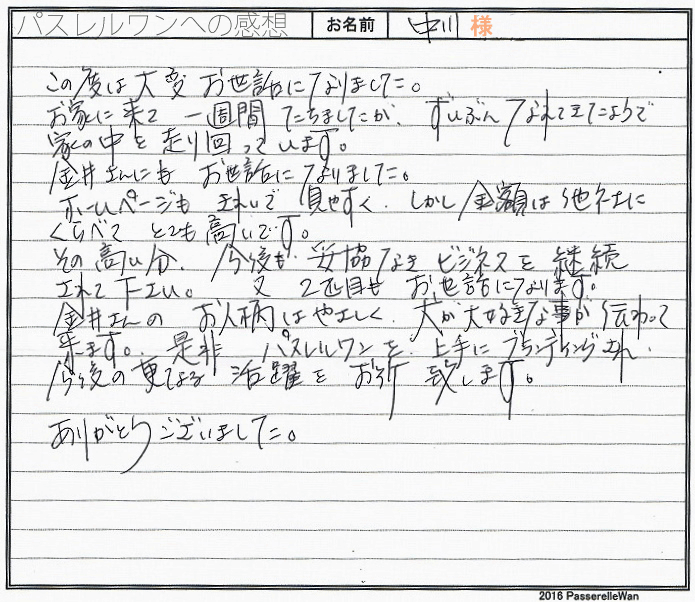 パスレルワンへの感想 お名前 中川 様
この度は大変お世話になりました。
お家に来て一週間たちましたが、ずいぶんなれてきたようで
家の中を走り回っています。
金井さんにもお世話になりました。
ホームページもきれいで見やすく、しかし金額は他社に
くらべてとても高いです。
その高い分、今後も妥協なきビジネスを継続
されて下さい。又2匹目もお世話になります。
金井さんのお人柄はやさしく、犬が大好きな事が伝わって
来ます。是非パスレルワンを上手にブランディングされ、
今後の更なる活躍をお祈致します。
ありがとうございました。
2016 PasserelleWan